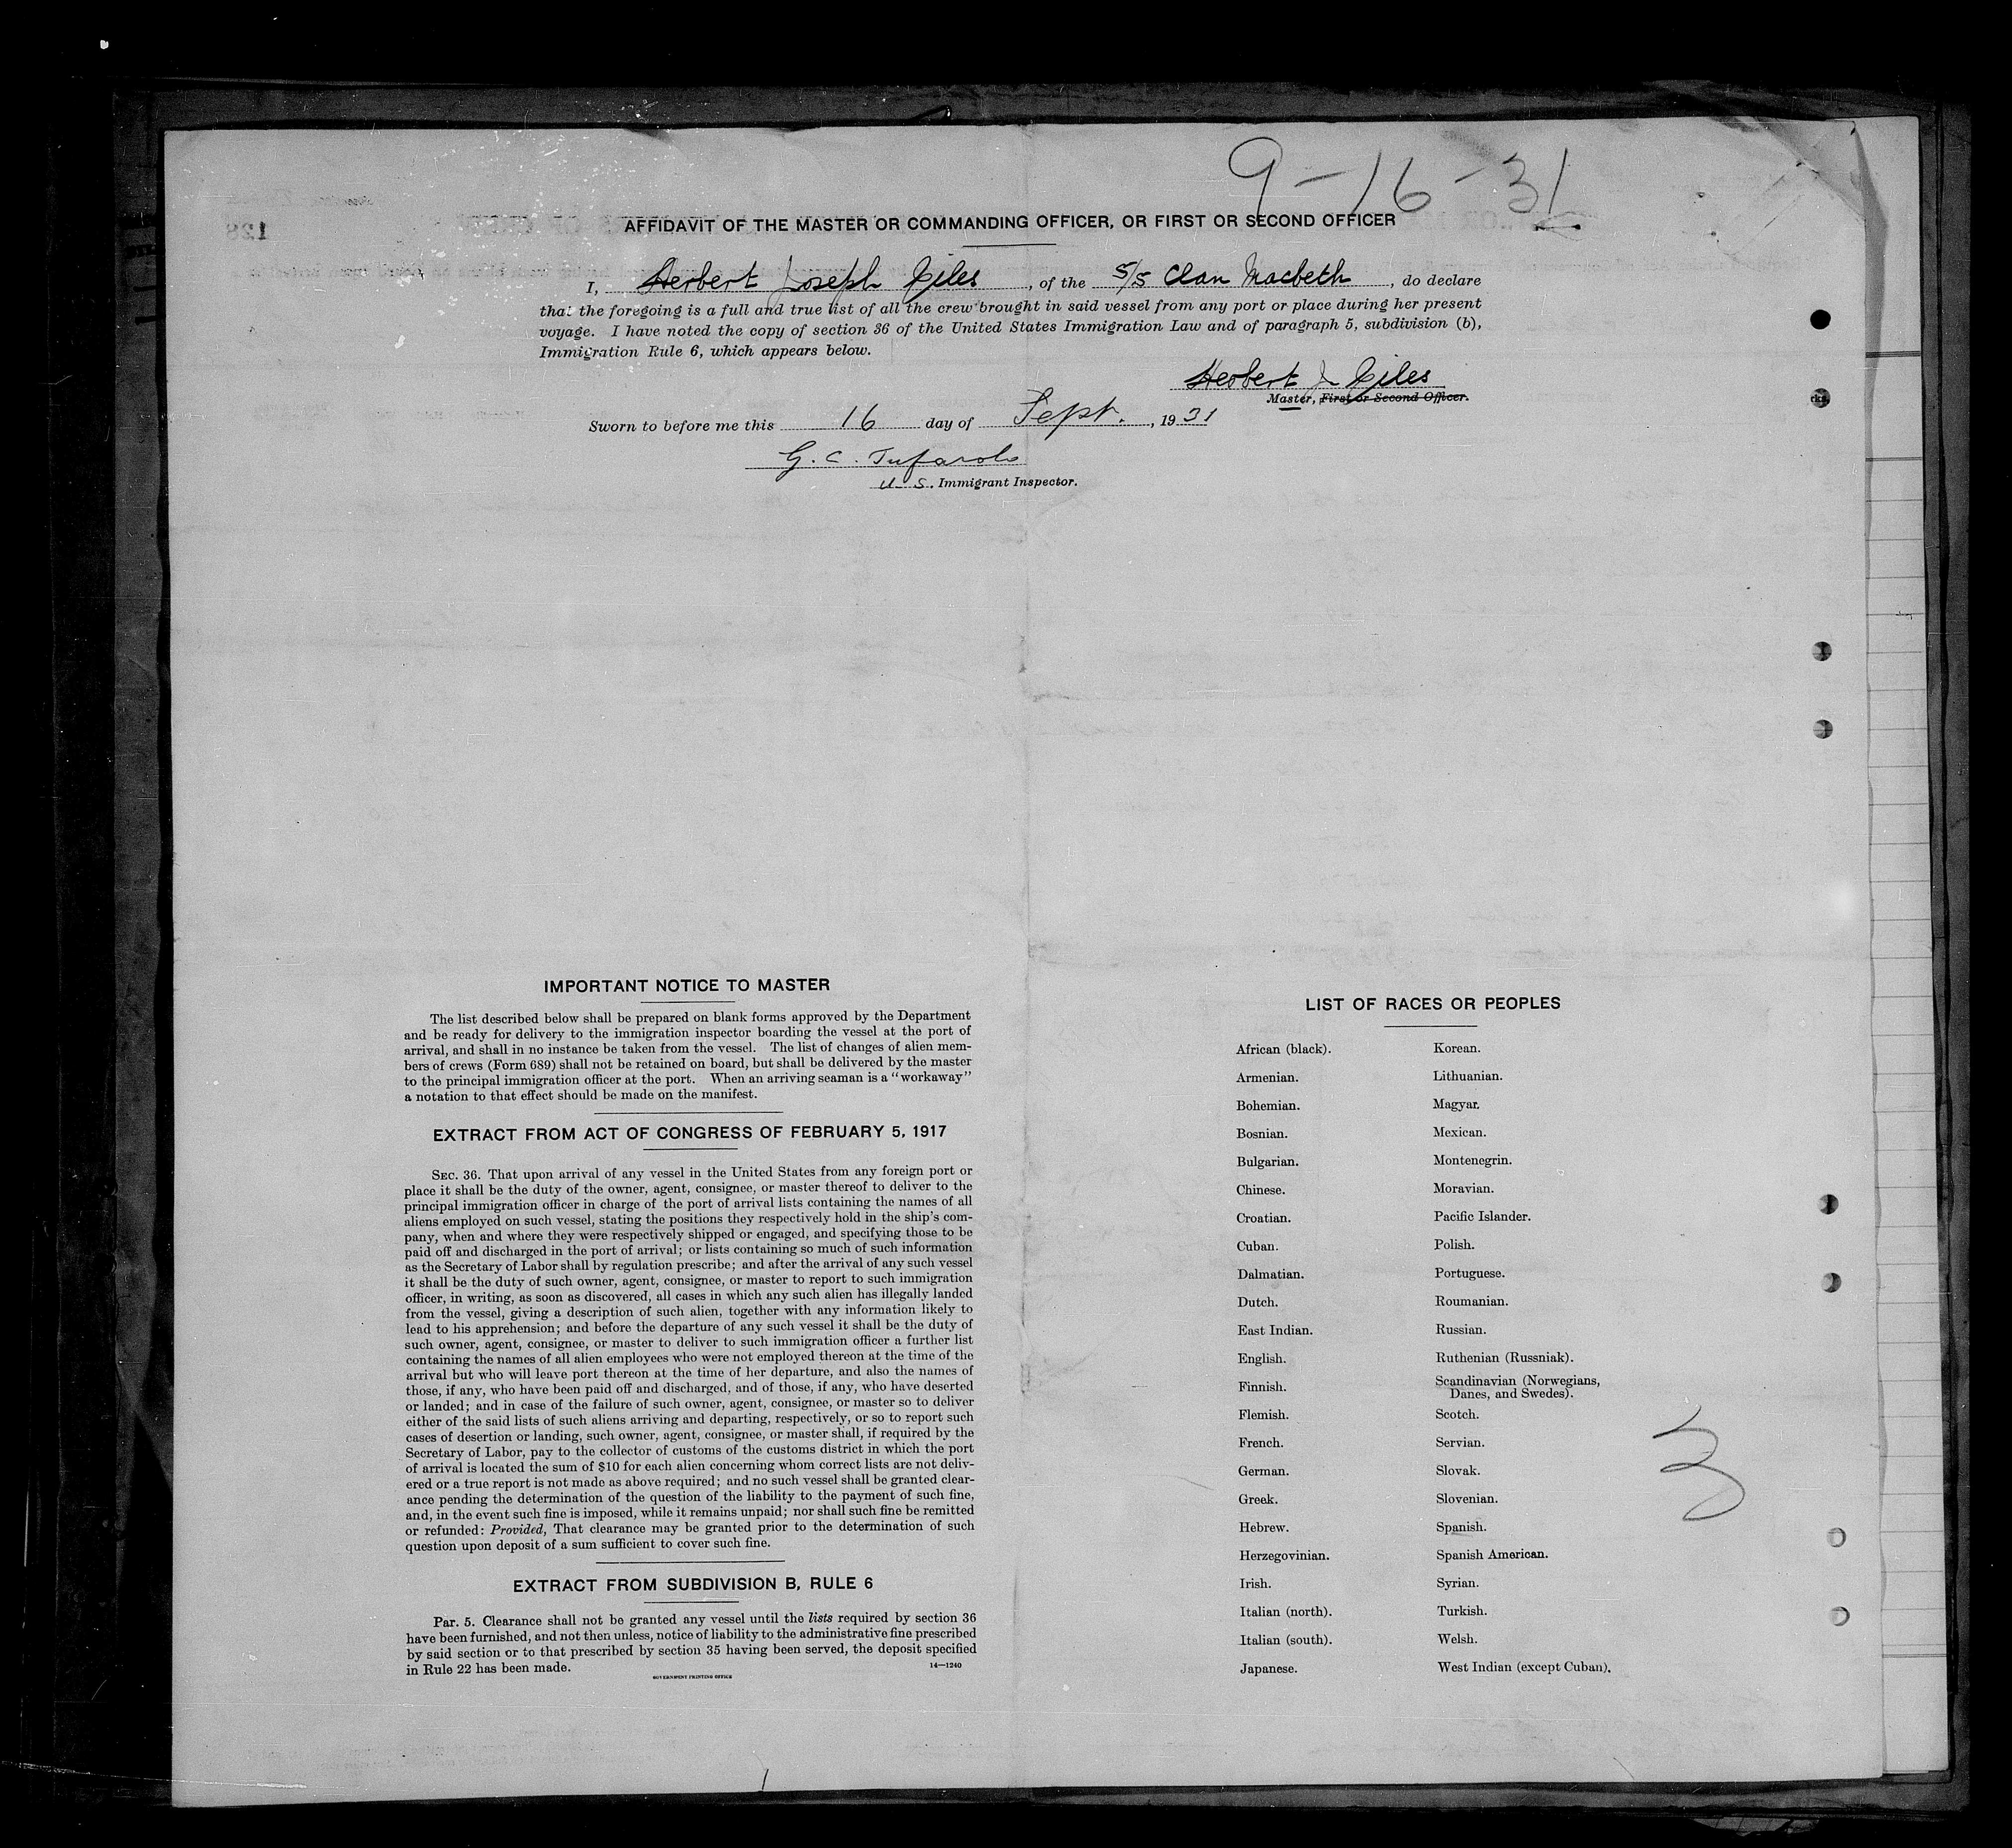 9-16-31
AFFIDAVIT OF THE MASTER OR COMMANDING OFFICER, OR FIRST OR SECOND OFFICER
I, Herbert Joseph Giles, of the S/S Clan Macbeth, do declare
that the foregoing is a full and true list of all the crew brought in said vessel from any port or place during her present
voyage. I have noted the copy of section 36 of the United States Immigration Law and of paragraph 5, subdivision (b),
Immigration Rule 6, which appears below.
Herbert J Giles
Master, First or Second Officer.
Sworn to before me this 16 day of Sept., 1931
G. C. Tufarolo
U S. Immigrant Inspector.
IMPORTANT NOTICE TO MASTER
The list described below shall be prepared on blank forms approved by the Department
and be ready for delivery to the immigration inspector boarding the vessel at the port of
arrival, and shall in no instance be taken from the vessel. The list of changes of alien mem-
bers of crews (Form 689) shall not be retained on board, but shall be delivered by the master
to the principal immigration officer at the port. When an arriving seaman is a "workaway"
a notation to that effect should be made on the manifest.
EXTRACT FROM ACT OF CONGRESS OF FEBRUARY 5, 1917
SEC. 36. That upon arrival of any vessel in the United States from any foreign port or
place it shall be the duty of the owner, agent, consignee, or master thereof to deliver to the
principal immigration officer in charge of the port of arrival lists containing the names of all
aliens employed on such vessel, stating the positions they respectively hold in the ship's com-
pany, when and where they were respectively shipped or engaged, and specifying those to be
paid off and discharged in the port of arrival; or lists containing so much of such information
as the Secretary of Labor shall by regulation prescribe; and after the arrival of any such vessel
it shall be the duty of such owner, agent, consignee, or master to report to such immigration
officer, in writing, as soon as discovered, all cases in which any such alien has illegally landed
from the vessel, giving a description of such alien, together with any information likely to
lead to his apprehension; and before the departure of any such vessel it shall be the duty of
such owner, agent, consignee, or master to deliver to such immigration officer a further list
containing the names of all alien employees who were not employed thereon at the time of the
arrival but who will leave port thereon at the time of her departure, and also the names of
those, if any, who have been paid off and discharged, and of those, if any, who have deserted
or landed; and in case of the failure of such owner, agent, consignee, or master so to deliver
either of the said lists of such aliens arriving and departing, respectively, or so to report such
cases of desertion or landing, such owner, agent, consignee, or master shall, if required by the
Secretary of Labor, pay to the collector of customs of the customs district in which the port
of arrival is located the sum of $10 for each alien concerning whom correct lists are not deliv-
ered or a true report is not made as above required; and no such vessel shall be granted clear-
ance pending the determination of the question of the liability to the payment of such fine,
and, in the event such fine is imposed, while it remains unpaid; nor shall such fine be remitted
or refunded: Provided, That clearance may be granted prior to the determination of such
question upon deposit of a sum sufficient to cover such fine.
EXTRACT FROM SUBDIVISION B, RULE 6
Par. 5. Clearance shall not be granted any vessel until the lists required by section 36
have been furnished, and not then unless, notice of liability to the administrative fine prescribed
by said section or to that prescribed by section 35 having been served, the deposit specified
in Rule 22 has been made.
14—1240
GOVERNMENT PRINTING OFFICE
LIST OF RACES OR PEOPLES
African (black).
Armenian.
Bohemian.
Bosnian.
Bulgarian.
Chinese.
Croatian.
Cuban.
Dalmatian.
Dutch.
East Indian.
English.
Finnish.
Flemish.
French.
German.
Greek.
Hebrew.
Herzegovinian.
Irish.
Italian (north).
Italian (south).
Japanese.
Korean.
Lithuanian.
Magyar.
Mexican.
Montenegrin.
Moravian.
Pacific Islander.
Polish.
Portuguese.
Roumanian.
Russian.
Ruthenian (Russniak).
Scandinavian (Norwegians,
Danes, and Swedes).
Scotch.
Servian.
Slovak.
Slovenian.
Spanish.
Spanish American.
Syrian.
Turkish.
Welsh.
West Indian (except Cuban).
3